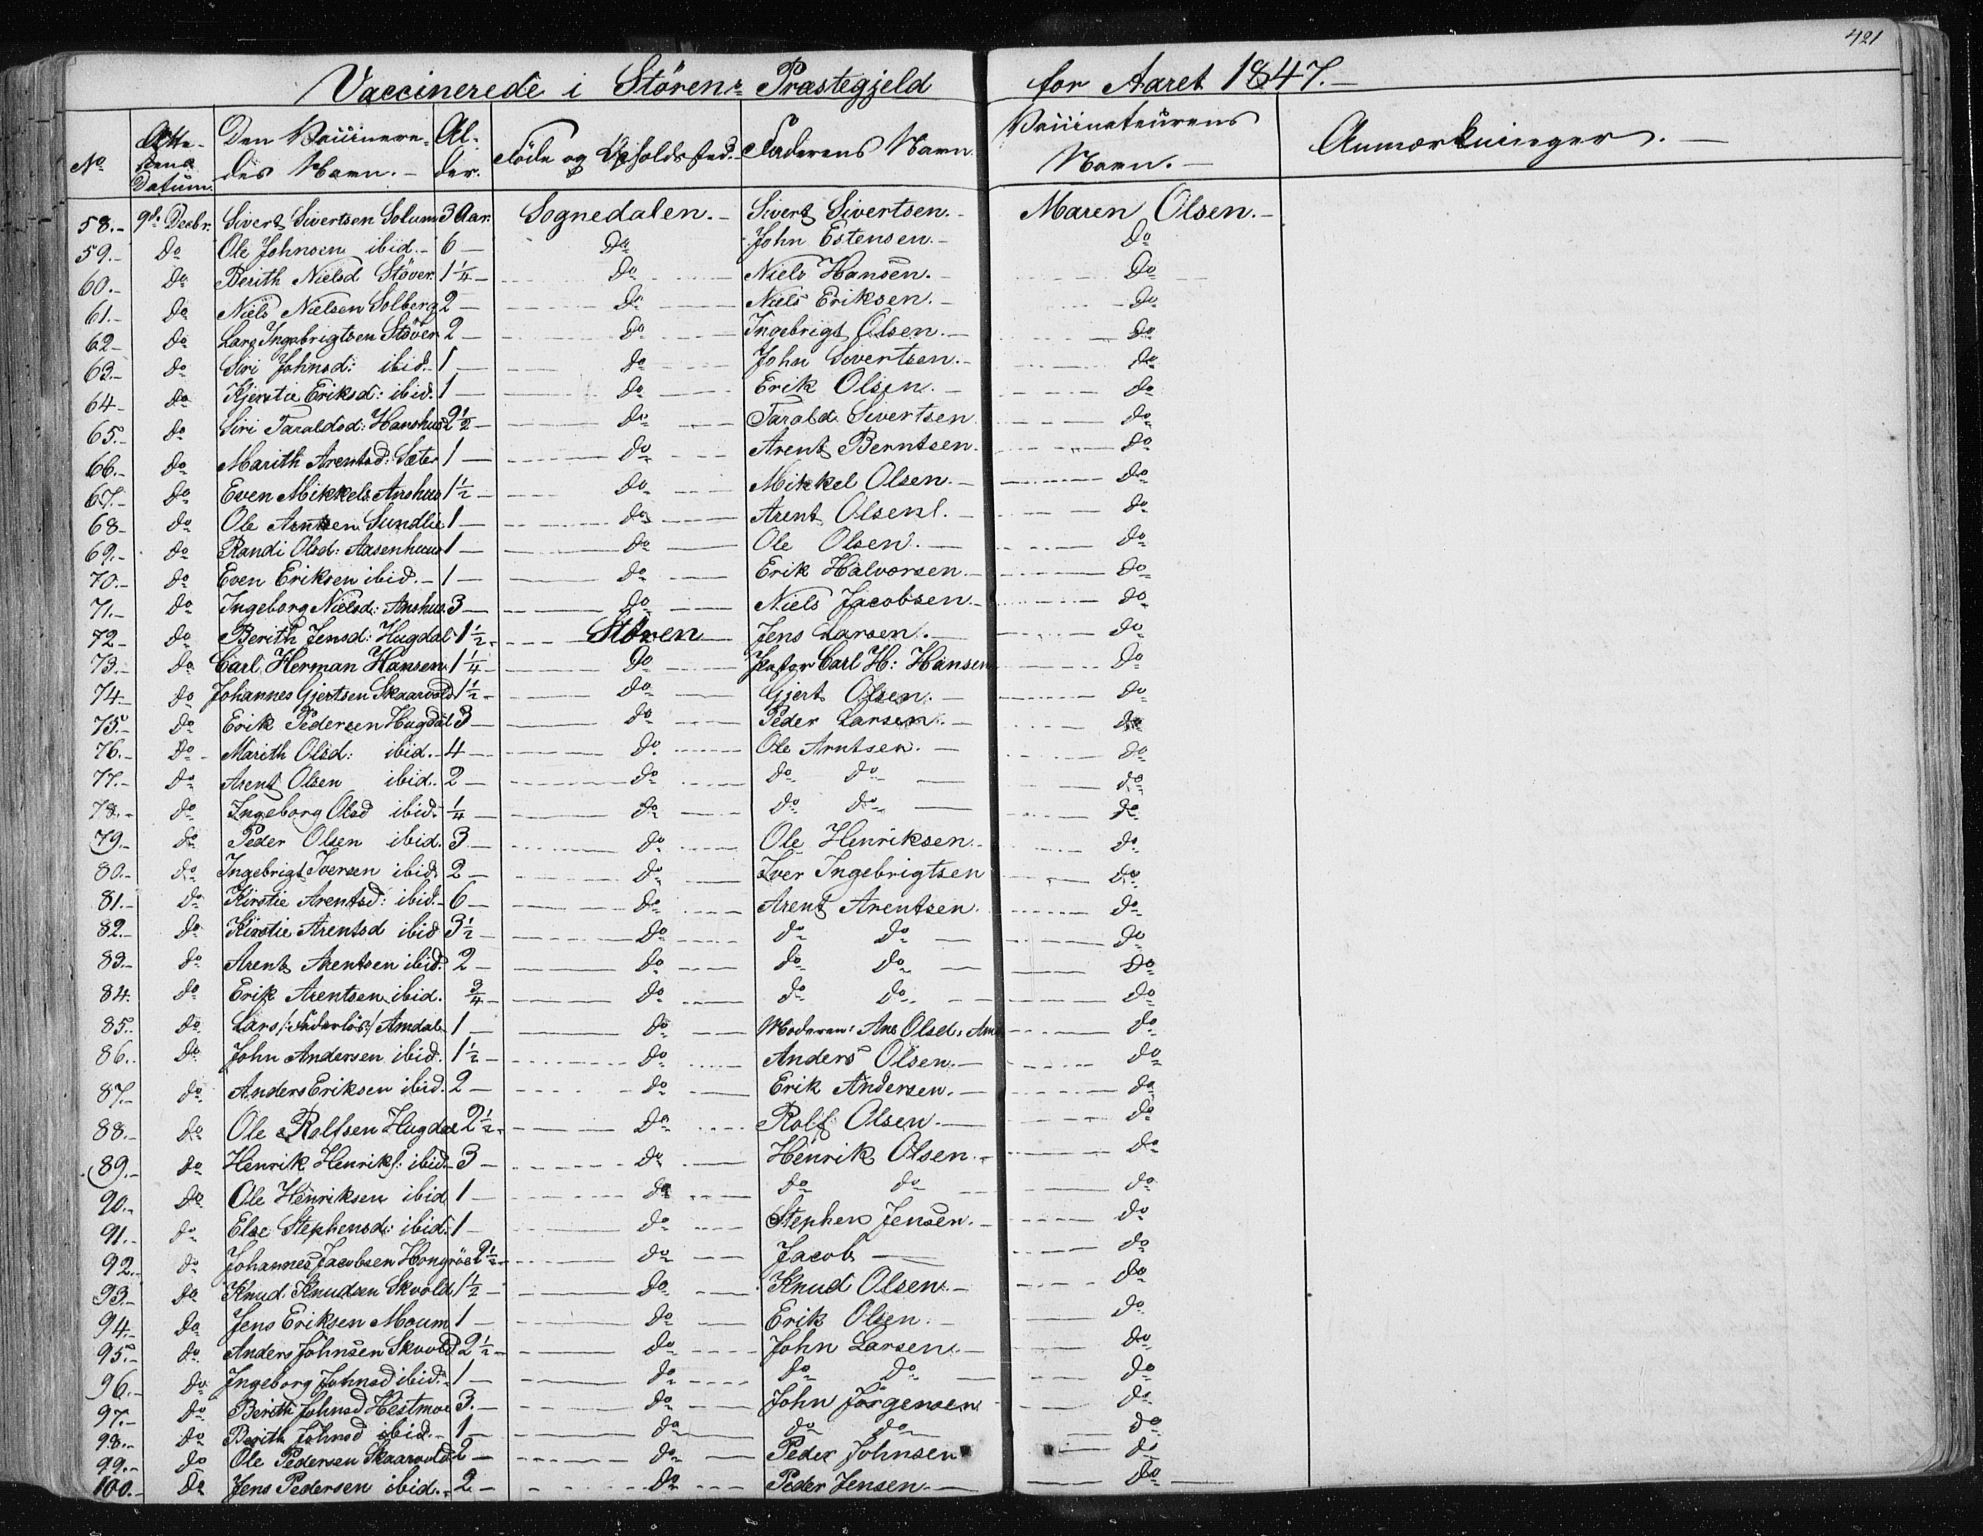 421
Vaccinerede i Störens Præstegjeld for Aaret 1847.-
No Attestens Datum. Den Vaccineredes Navn.- Alder. Föde og Opholdssted.- Faderens Navn. Vaccinateurens Navn.- Anmærkninger.-
58.- 9de Decbr. Sivert Sivertsen Solum 3 Aar. Sognedalen.- Sivert Sivertsen.- Maren Olsen.-
59.- do Ole Johnsen ibid.- 6 - do John Estensen.- do
60.- do Berith Nielsd Stöver. 1 1/4 - do Niels Hansen.- do
61.- do Niels Nielsen Solberg 2 - do Niels Eriksen.- do
62.- do Lars Ingebrigtsen Stöver 2 - do Ingebrigt Olsen.- do
63.- do Siri Johnsd: ibid.- 1 - do John Sivertsen.- do
64.- do Kjerstie Eriksd: ibid. 1 - do Erik Olsen.- do
65.- do Siri Taraldsd: Hanshus 2 1/2 - do Tarald Sivertsen do
66.- do Marith Arentsd: Sæter 1 - do Arent Berntsen. do
67.- do Even Mikkels. Anshus 1 1/2 - do Mikkel Olsen.- do
68.- do Ole Arntsen Sundlie 1 - do Arent Olsen. do
69.- do Randi Olsd: Aasenhuus 1 - do Ole Olsen.- do
70.- do Even Eriksen ibid.- 1 - do Erik Halvorsen.- do
71.- do Ingeborg Nielsd: Anshus. 3 - do Niels Jacobsen.- do
72.- do Berith Jensd: Hugdal 1 1/2.- Stören Jens Larsen.- do
73.- do Carl Herman Hansen 1 1/4 - do Carl H: Hansen do
74.- do Johannes Gjertsen Skaarvold 1 1/2 - do Gjert Olsen.- do
75.- do Erik Pedersen Hugdal 3 - do Peder Larsen.- do
76.- do Marith Olsd: ibid.- 4 - do Ole Arntsen.- do
77.- do Arent Olsen ibid. 2 - do do do - do
78.- do Ingeborg Olsd ibid. 1/4 - do do do - do
79.- do Peder Olsen ibid. 3 - do Ole Henriksen. do
80.- do Ingebrigt Iversen ibid. 2 - do Iver Ingebrigtsen do
81.- do Kirstie Arentsd: ibid.- 6 - do Arent Arentsen. do
82.- do Kirstie Arentsd ibid 3 1/2 - do do do - do
83.- do Arent Arentsen ibid. 2 - do do do - do
84. do Erik Arentsen ibid. 3/4 - do do do - do
85.- do Lars /:Faderlös:/ Amdal 1 - do Moderen: Ane Olsd: do
86.- do John Andersen ibid. 1 1/2 - do Anders Olsen.- do
87.- do Anders Eriksen ibid. 2 - do Erik Andersen.- do
88.- do Ole Rolfsen Hugdal 2 1/2.- do Rolf Olsen.- do
89.- do Henrik Henriks: ibid. 3 - do Henrik Olsen.- do
90.- do Ole Henriksen ibid 1 - do do do - do
91.- do Else Stephensd: ibid. 1 - do Stephen Jensen.- do
92.- do Johannes Jacobsen 2 1/2 - do Jacob - do
93.- do Knud Knudsen Skvold 1 1/2 - do Knud Olsen.- do
94.- do Jens Eriksen Moum 1 - do Erik Olsen.- do
95.- do Anders Johnsen Skvold 2 1/2 - do John Larsen.- do
96.- do Ingeborg Johnsd ibid.- 1 - do do do - do
97.- do Berith Johnsd Hestmoe 3.- do John Jörgensen do
98.- do Berith Johnsd ibid.- 1 - do do do do
99.- do Ole Pedersen Skaarvold 2 - do Peder Johnsen do
100.- do Jens Pedersen ibid.- 2 - do Peder Jensen.- do